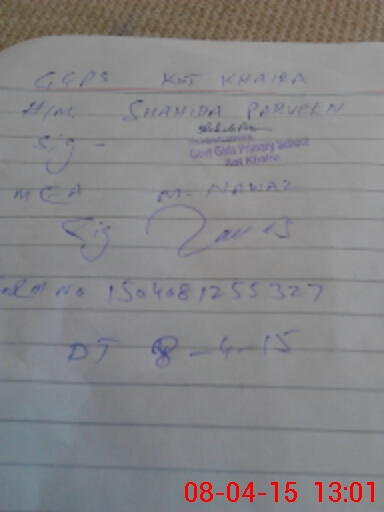 GGPS KOT KHAIRA
H/M. SHAHIDA PARVEEN
Sig -
Govt Girls Primary School
Kot Khaira
MEA M. NAWAZ
Sig
No 1504081255327
DT 8-4-15
08-04-15 13:01